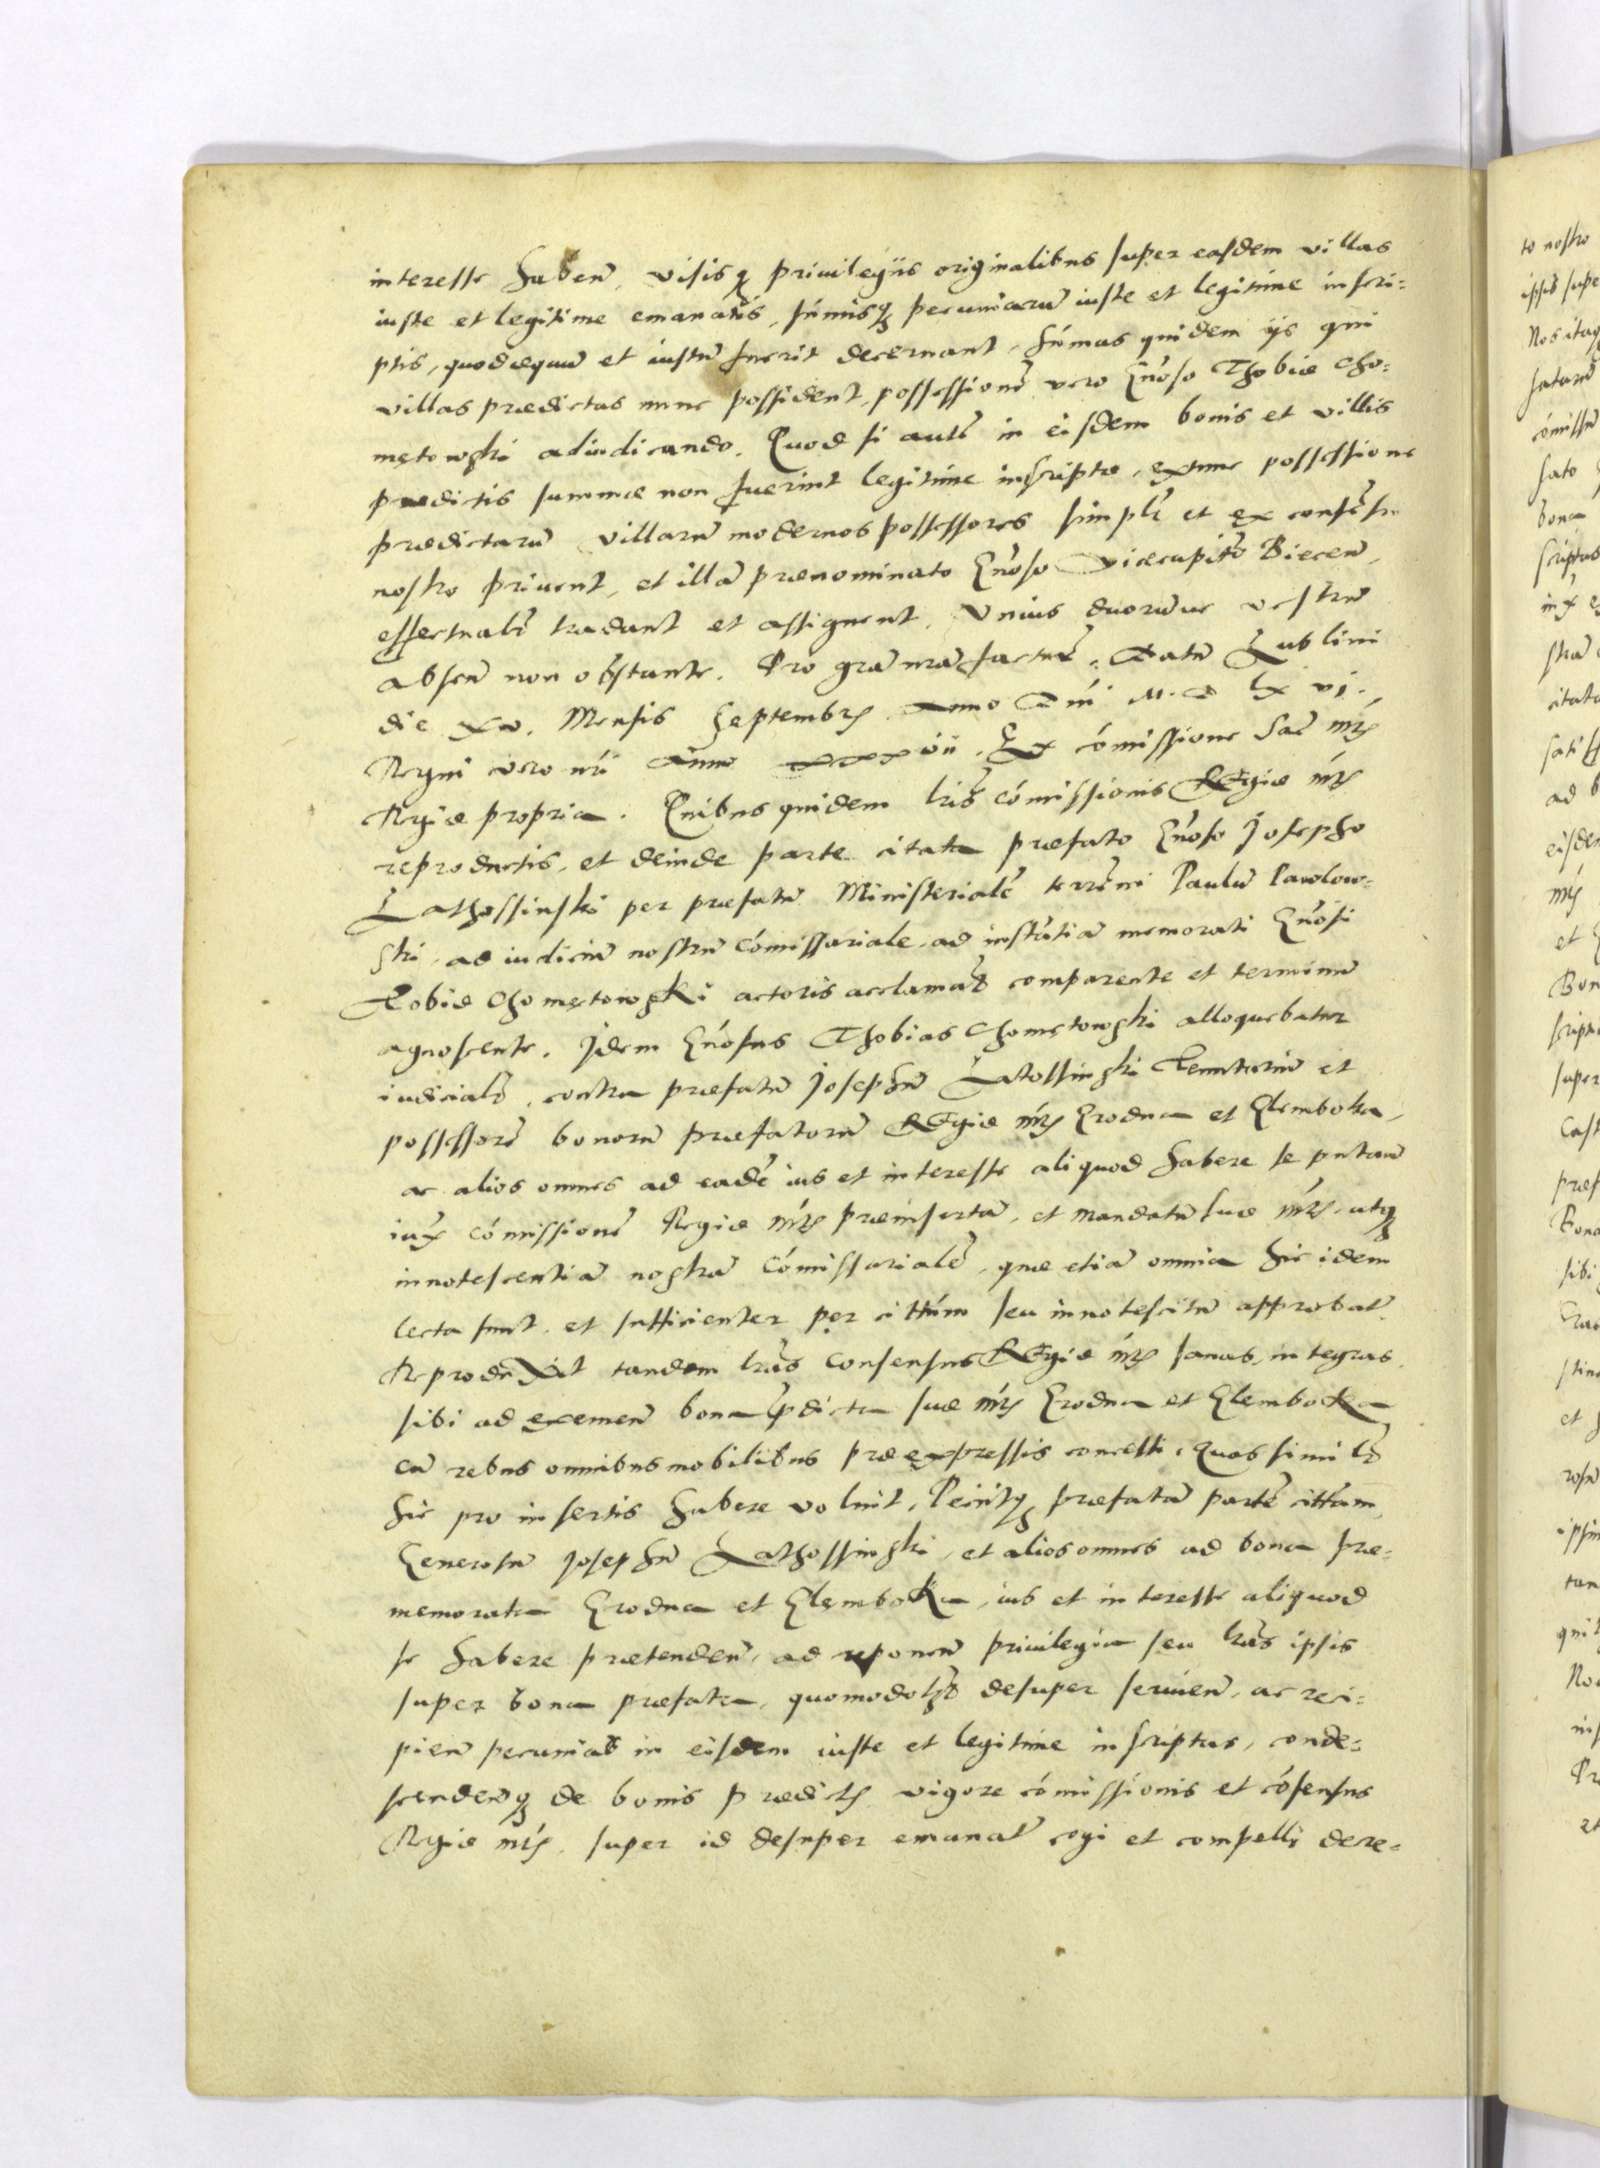 interesse haben̄, visisq₃ priuilegijs originalibus super easdem villas
iuste et legitime emanatis, su͞misq₃ pecuniarū iuste et legitime inscri=
ptis, quod aequū et iustū fuerit decernant, su͞mas quidem ijs qui
villas praedictas nunc possident, possessionē vero G͞noso Thobiae Cho=
mętowski adiudicando. Quod si autē in eisdem bonis et villis
praedictis summae non fuerint legitime inscriptae, extunc possessione
praedictarū villarū modernos possessores simplr̄ et ex consēsu
nostro priuent, et illā praenominato G͞noso Vicecapit͞o Biecen̄,
effectualr̄ tradant et assignent, Vnius duorūue vestrū
absen̄ non obstante. Pro gr͞a n͞ra facturi. Datū Lublini
die xv. Mensis Septembr̄ Anno D͞ni M. D lx vj.
Regni vero n͞ri Anno xxxvii. Ex co͞missione Sac̄ m͞tis
Regiae propria. Quibus quidem l͞ris co͞missionis REgiae m͞tis
reproductis, et deinde parte citata praefato G͞noso Josepho
Lathossinski per praefatū Ministerialē terrēm̄ Paulū Pawlow=
ski, ad iudiciū nostrū co͞missariale, ad instātiā memorati G͞nosi
Tobiae Chomętowski actoris acclamat̄ comparente et terminū
agnoscente. Idem G͞nosus Thobias Chomętowski alloquebatur
iudicialr̄, contra praefatū Josephū Latossinski Tenutariū et
possessorē bonorū praefatorū REgiae m͞tis Grodna et Glemboka,
ac alios omnes ad eadē ius et interesse aliquod habere se putan̄
iux̄ co͞missionē Regiae m͞tis praeinsertā, et mandatū suae m͞tis, utq₃
innotescentiā nostrā Co͞missarialē, quae etiā omnia hic idem
lecta sunt, et sufficienter per cittūm seu innotescitū approbat̄
Reproduxit tandem l͞ras Consensus REgiae m͞tis sanas, integras,
sibi ad exemen̄ bona p̄dicta suae m͞tis Grodna et Glemboka
cū rebus omnibus mobilibus praeexpressis concessi, quas similr̄
hic pro insertis habere voluit, Petiitq₃ praefatā partē cittam,
Generosū Josephū Lathossinski, et alios omnes ad bona prae=
memorata Grodna et Glemboka, ius et interesse aliquod
se habere praetenden̄, ad reponen̄ priuilegia seu l͞ras ipsis
super bona praefata, quomodolꝫt̄ desuper seruien̄, ac reci=
pien̄ pecunias in eisdem iuste et legitime inscriptas, conde=
scenden̄q₃ de bonis praedictis vigore co͞missionis et cōsensus
Regiae m͞tis, super id desuper emanat̄ cogi et compelli decre=